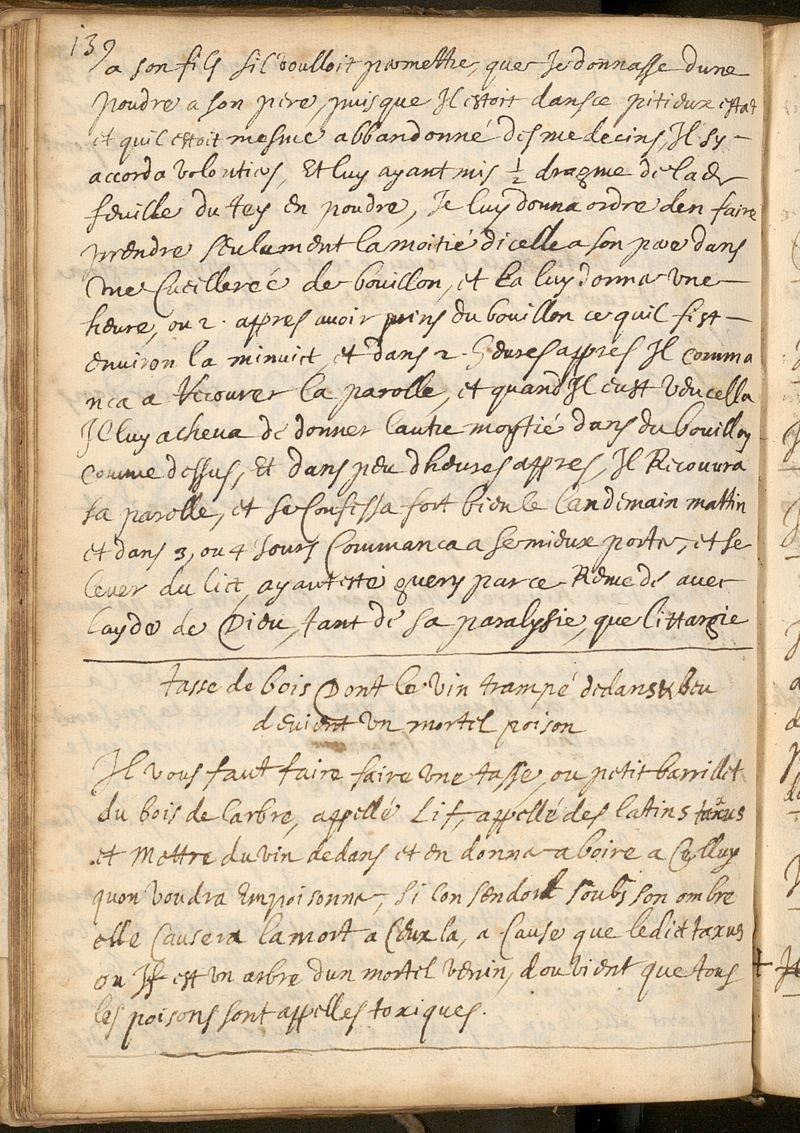 139
a son fils sil voulloit permettre, que Je donnasse dune
poudre a son pere, puisque Il estoit dans ce pitieux estat
et quil estoit mesme abbandonné des medecins, Il sy
accorda volontiers, Et luy ayant mis ½ dragme de la
feuille du tey en poudre, Je luy donna ordre den faire
prendre seulument la moitié dicelle a son pere dans
une Cueillereé de bouillon, et la luy donna une
heure, ou 2. appres avoir prins du bouillon ce quil fist
environ la minuict, et dans 2 heures appres Il comma
nca a Recouvrer la parolle, et quand Il eust veu cella
Il luy acheva de donner lautre moytié dans du bouillon
comme dessus, Et dans peu dheures appres, Il Recouvra
sa parolle, et se Confessa fort bien le landemain mattin
et dans 3, ou 4 Jours Commanca a se mieux porter, et se
lever du lict, ayant esté guery par ce Remede avec
layde de Dieu, tant de sa paralysie, que littargie
tasse de bois Dont le vin trampé dedans & beu
devient un mortel poison
Il vous faut faire faire une tasse, ou petit barrillet
du bois de larbre, appellé Lif, appellé des latins taxus
et Mettre du vin dedans et en donner a boire a Celluy
quon voudra Empoisonner, si lon sendort soubs son ombre
elle Causera la mort a Ceux la, a Cause que ledict taxus
ou If est un arbre dun mortel venin, dou vient que tous
les poisons sont appelles toxiques.